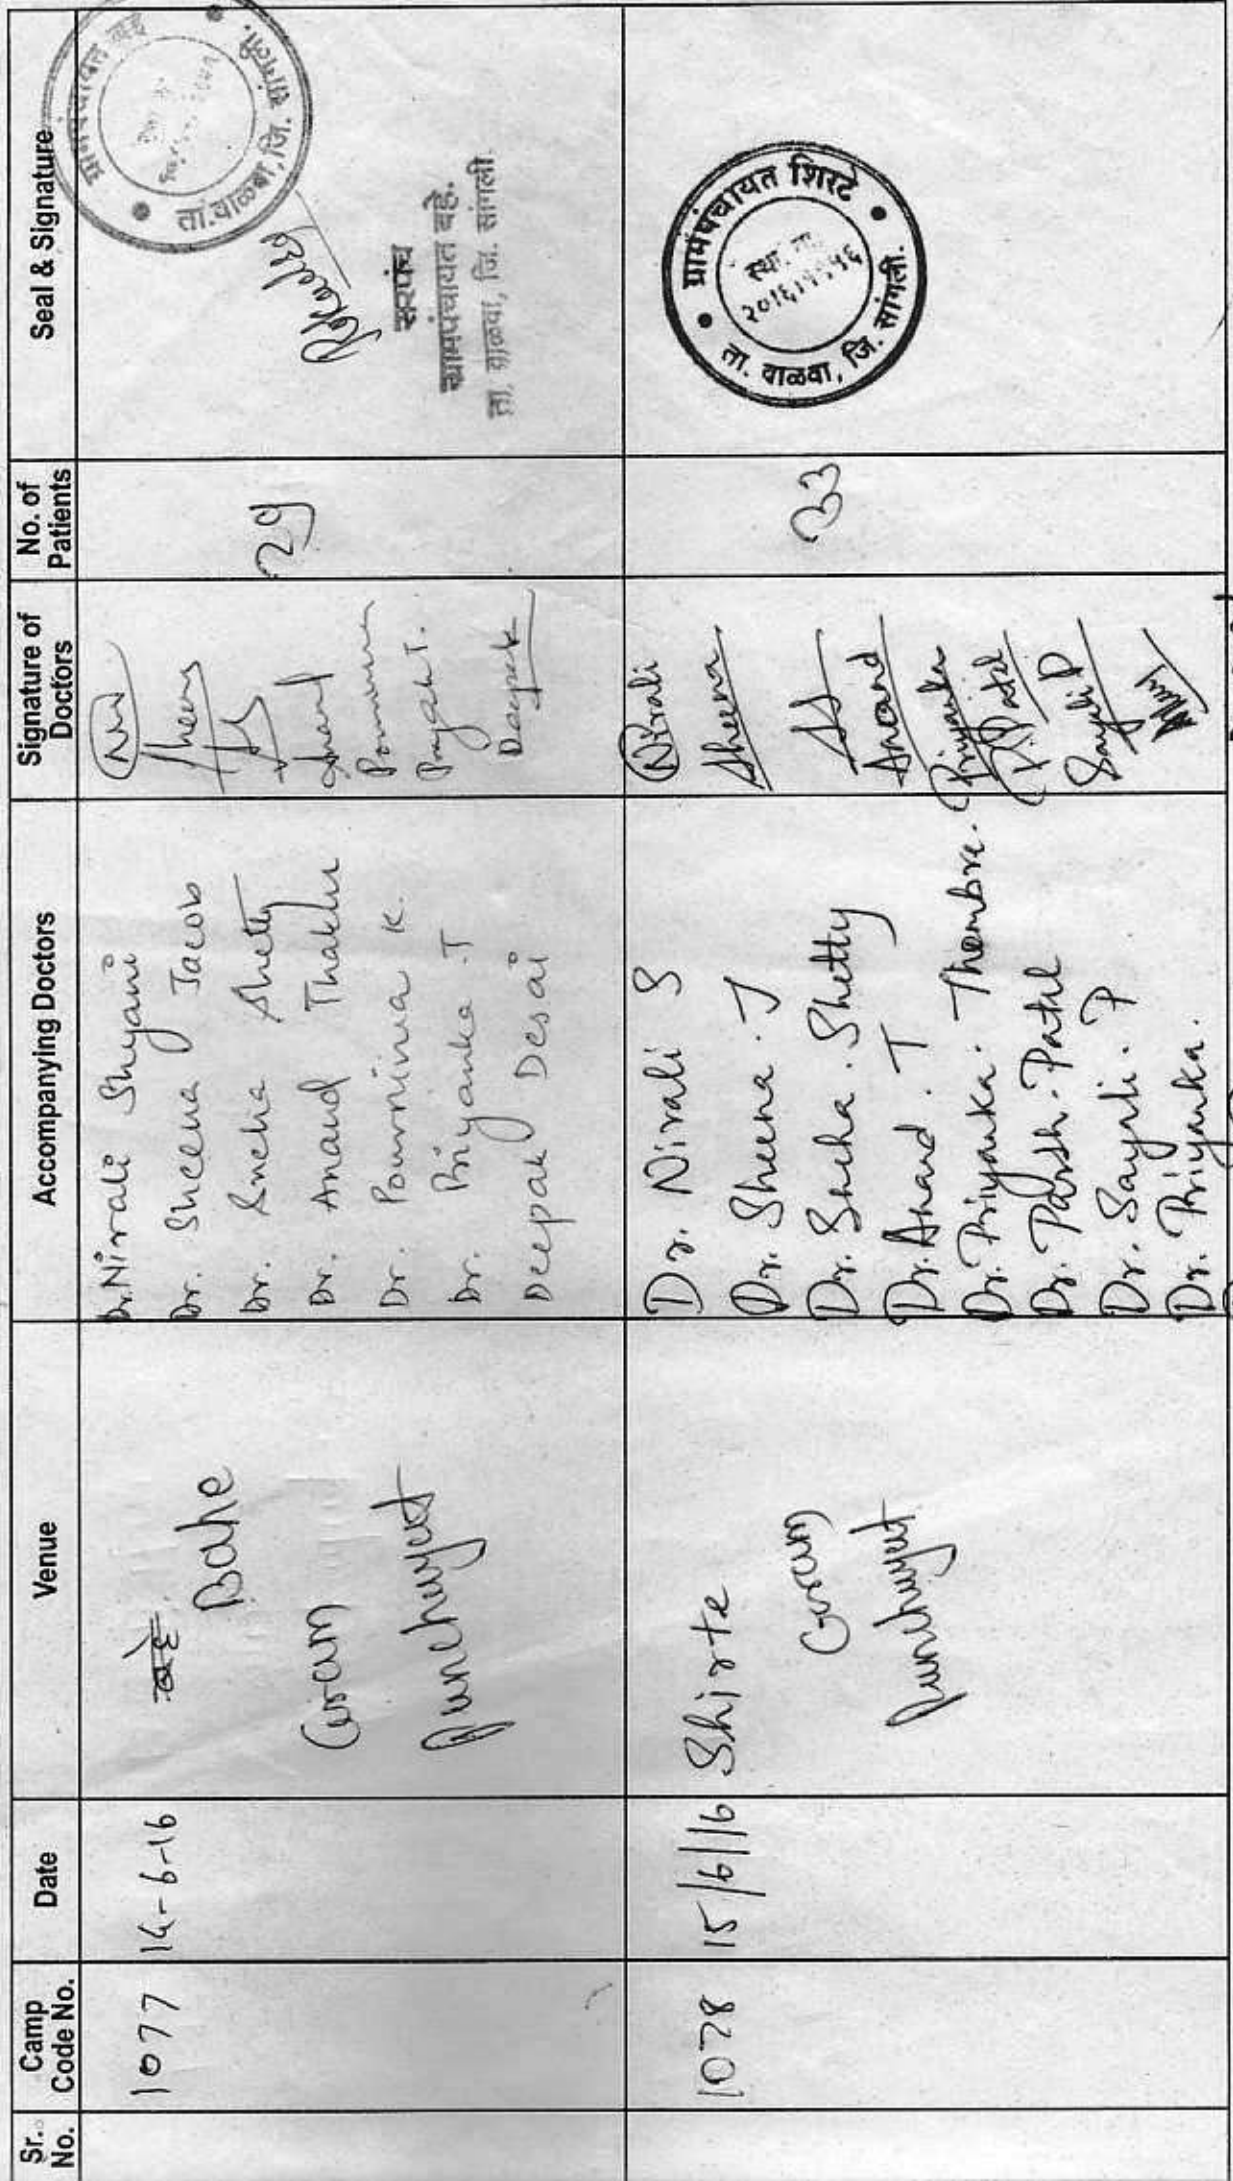 Sr. No.
Camp Code No.
Date
Venue
Accompanying Doctors
Signature of Doctors
No. of Patients
Seal & Signature
1077
14-6-16
बहे
Bahe
Gram
Punchuyet
Dr. Nirali Shyani
Dr. Sheena Jacob
Dr. Sneha Shetty
Dr. Anand Thakur
Dr. Pournima K.
Dr. Priyanka .T
Deepak Desai
Sheena
Anand
Pournima
Deepak
29
ता. वाळवा, जि. सांगली.
सरपंच
ग्रामपंचायत बहे.
ता. वाळवा, जि. सांगली.
1078
15/6/16
Shirte
Gram
Punchuyet
Dr. Nirali S
Dr. Sheena . J
Dr. Sneha . Shetty
Dr. Anand . T
Dr. Priyanka . Thombre.
Dr. Parth . Patel
Dr. Sayali . P
Dr. Priyanka.
Nirali
Sheena
Anand
Priyanka
PPatel
Sayali P
33
ग्रामपंचायत शिरटे
ता. वाळवा, जि. सांगली.